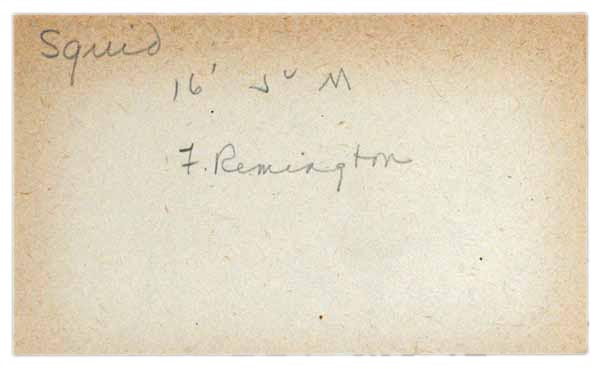 Squid
16' J" M
F. Remington